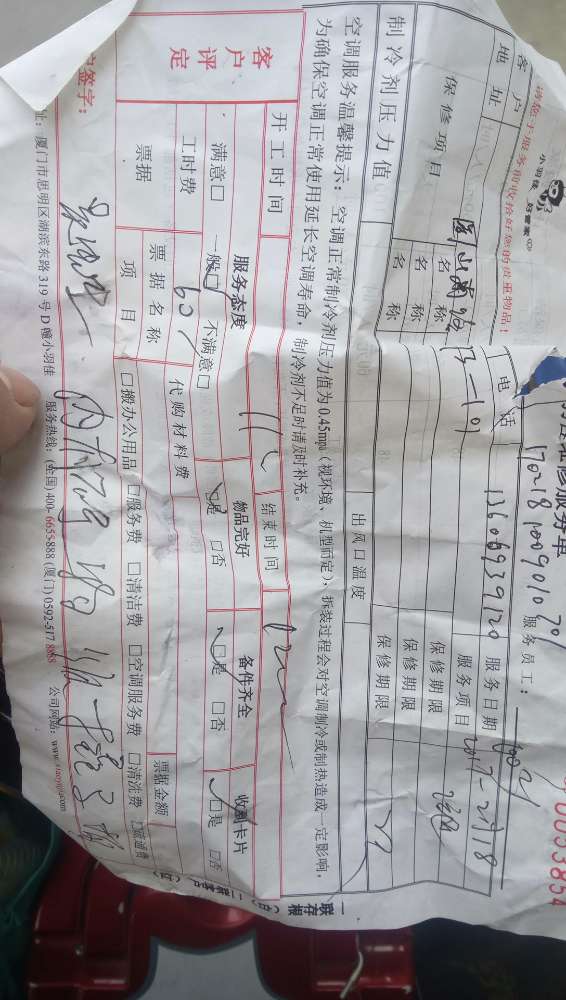 请您于服务前收拾好您的贵重物品！
小羽佳 好管家
维修服务单
0053854
170218100901070
服务员工：
客户地址
电话
13606939120
服务日期
2017-2月18
保修项目
名称
服务项目
名称
保修期限
名称
保修期限
保修期限
制冷剂压力值
出风口温度
空调服务温馨提示：空调正常制冷剂压力值为0.45mpa（视环境、机型而定），拆装过程会对空调制冷或制热造成一定影响，
为确保空调正常使用延长空调寿命，制冷剂不足时请及时补充。
开工时间
结束时间
客户评定
服务态度
物品完好
备件齐全
收到卡片
满意□ 一般□ 不满意□
□是 □否
□是 □否
□是 □否
工时费
60
代购材料费
票据
票据名称
票据金额
项目
□搬办公用品 □服务费 □清洁费 □空调服务费 □清洗费 □交通费
户签字：
址：厦门市思明区湖滨东路319号D幢小羽佳 服务热线：(全国) 400-6655-888 (厦门) 0592-517 8888 公司网站：www.xiaoyujia.com
一联存根（白）二联客户（红）